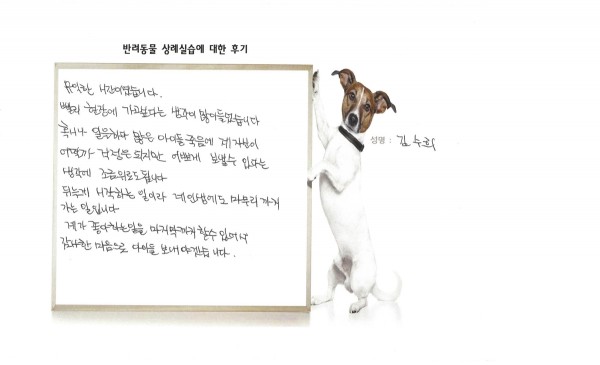 반려동물 상례실습에 대한 후기
뜻있는 시간이였습니다.
빨리 현장에 가고싶다는 생각이 많이들었습니다
혹시나 일을하다 많은 아이들 죽음에 제 자신이
어떨까 걱정은 되지만 이쁘게 보낼수 있다는
생각에 조금위로도됩니다
뒤늦게 시작하는 일이라 제인생에도 마무리까지
가는 일입니다
제가 좋아하는일을 마지막까지 할수 있어서
감사한 마음으로 아이들 보내야겠습니다.
성명 : 김수희